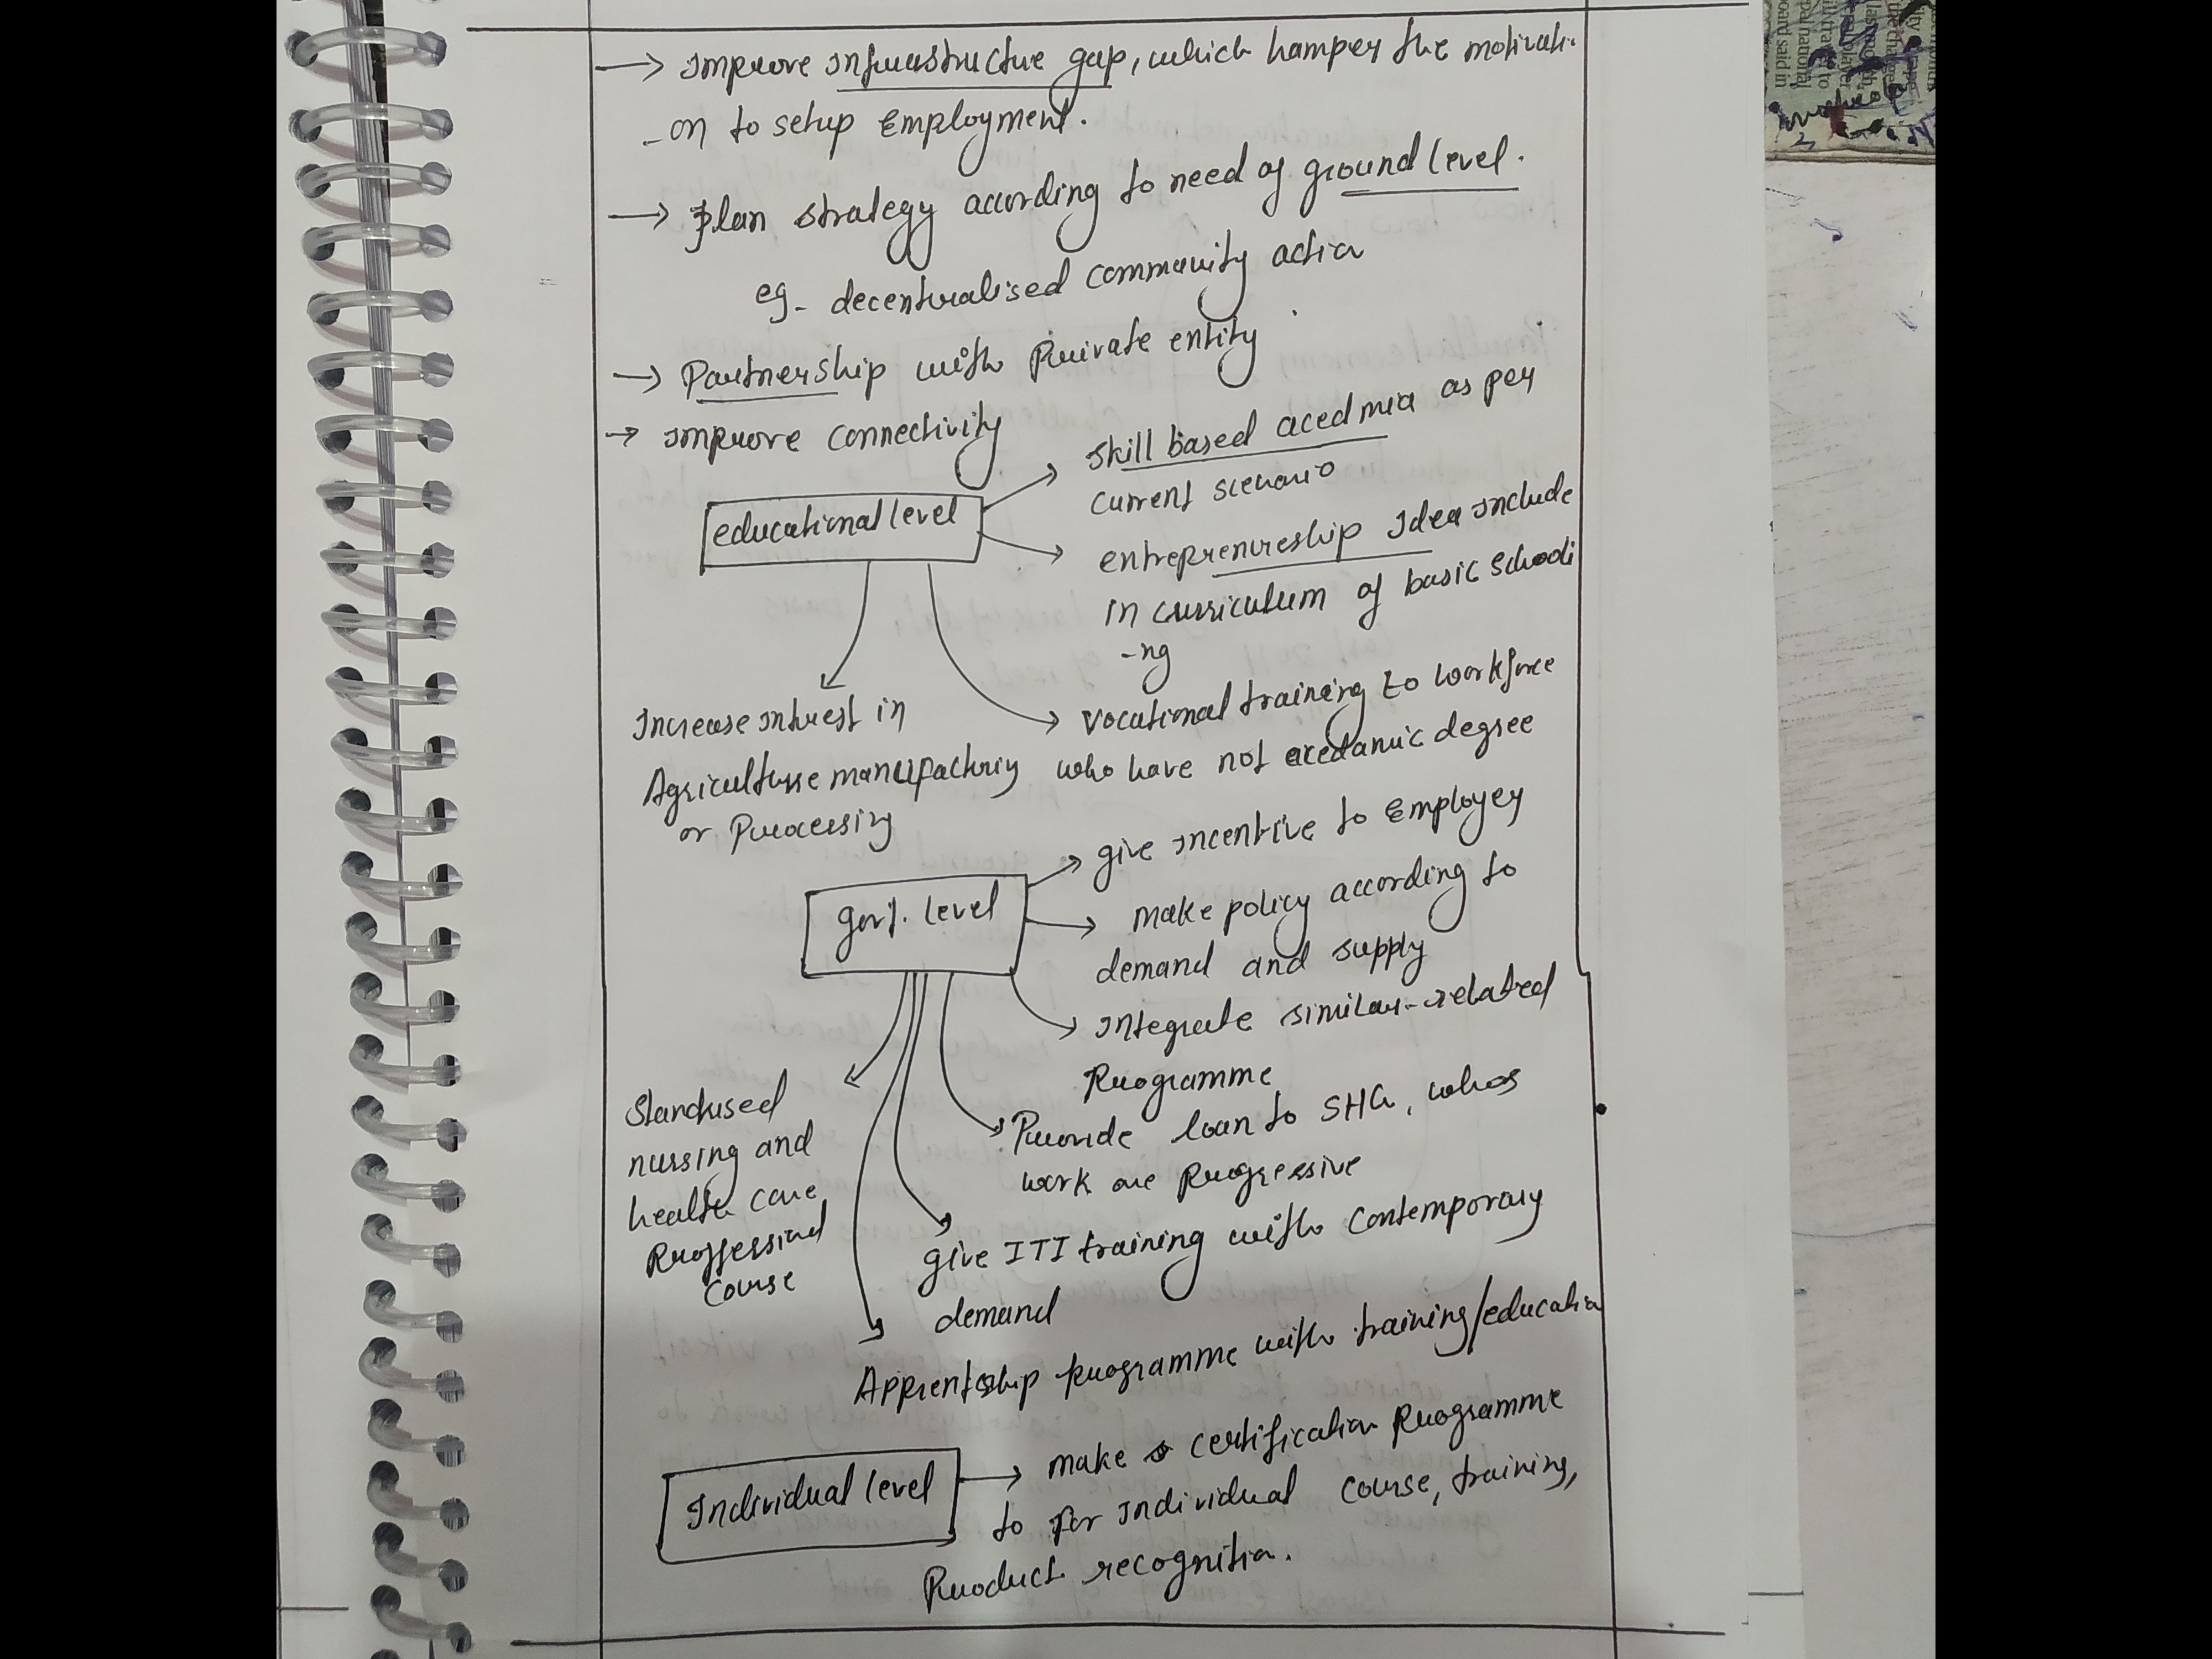 → Improve Infrastructure gap, which hamper the motivati-
-on to setup Employment.
→ Plan strategy according to need of ground level.
eg- decentralised community action
→ Partnership with Private entity
→ Improve connectivity
educational level
→ Skill based acedmia as per
current scenario
→ entreprenureship Idea include
in curriculum of basic schooli
-ng
→ Vocational training to workforce
who have not acedamic degree
Increase intrest in
Agriculture manufacturing
or Processing
govt. level
→ give incentive to Employer
→ make policy according to
demand and supply
→ Integrate similar-related
Programme
→ Provide loan to SHG, whos
work are Progressive
→ give ITI training with contemporary
demand
→ Apprentship programme with training/education
Standrised
nursing and
health care
Proffessional
course
Individual level
→ make certification Programme
to for individual course, training,
Product recognition.